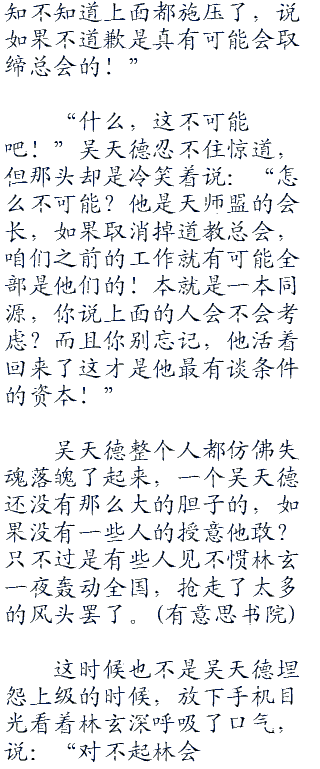 知不知道上面都施压了，说
如果不道歉是真有可能会取
缔总会的！”
“什么，这不可能
吧！”吴天德忍不住惊道，
但那头却是冷笑着说：“怎
么不可能？他是天师盟的会
长，如果取消掉道教总会，
咱们之前的工作就有可能全
部是他们的！本就是一本同
源，你说上面的人会不会考
虑？而且你别忘记，他活着
回来了这才是他最有谈条件
的资本！”
吴天德整个人都仿佛失
魂落魄了起来，一个吴天德
还没有那么大的胆子的，如
果没有一些人的授意他敢？
只不过是有些人见不惯林玄
一夜轰动全国，抢走了太多
的风头罢了。(有意思书院)
这时候也不是吴天德埋
怨上级的时候，放下手机目
光看着林玄深呼吸了口气，
说：“对不起林会